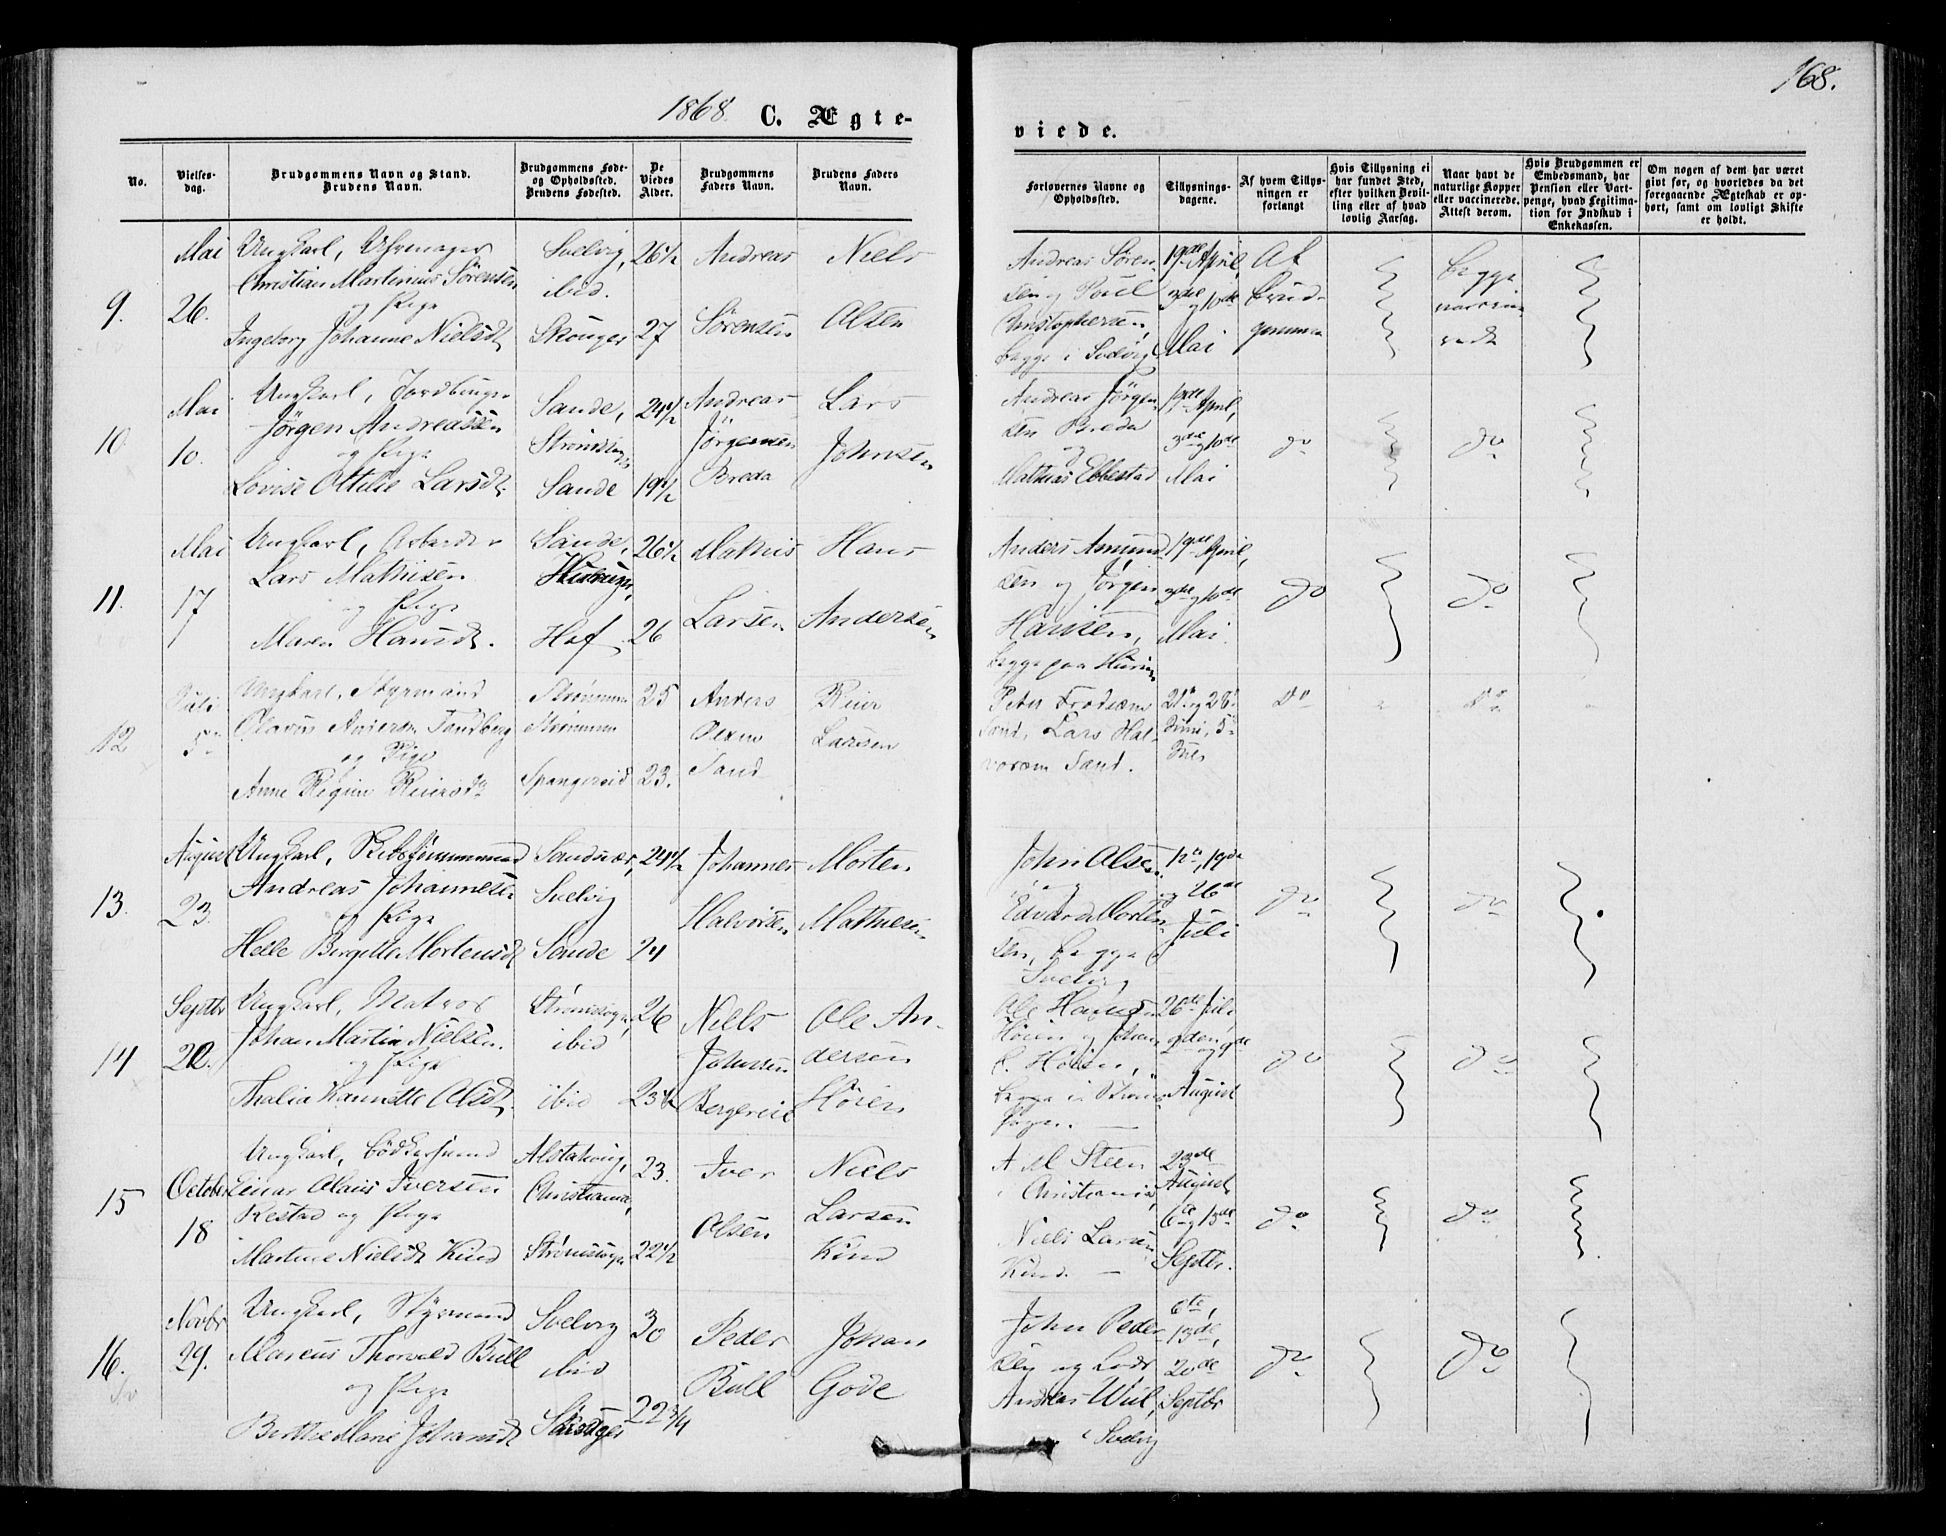 1868. C. Ægte-
viede.
168.
No.
Vielses-
dag.
Brudgommens Navn og Stand.
Brudens Navn.
Brudgommens Føde-
og Opholdssted.
Brudens Fødested.
De
Viedes
Alder.
Brudgommens
Faders Navn.
Brudens Faders
Navn.
Forlovernes Navne og
Opholdssted.
Tillysnings-
dagene.
Af hvem Tillys-
ningen er
forlangt
Hvis Tillysning ei
har fundet Sted,
efter hvilken Bevil-
ling eller af hvad
lovlig Aarsag.
Naar havt de
naturlige Kopper
eller vaccinerede.
Attest derom.
Hvis Brudgommen er
Embedsmand, har
Pension eller Vart-
penge, hvad Legitima-
tion for Indskud i
Enkekassen.
Om nogen af dem har været
gift før, og hvorledes da det
foregaaende Ægteskab er op-
hørt, samt om lovligt Skifte
er holdt.
9.
Mai
26.
Ungkarl, Uhrmager
Christian Martinius Sörensen
og Pige
Ingeborg Johanne Nielsdt
Svelvig,
ibid.
Skouger
26½
27
Andreas
Sörensen
Niels
Olsen
Andreas Sören-
sen og Poul
Christophersen,
begge i Svelvig
19de April,
3de og 10de
Mai
Af
Brud-
gommen
begge
vaccine-
rede
10.
Mai
10.
Ungkarl, Jordbruger
Jörgen Andreassen
og Pige
Lovise Ottilie Larsdt.
Sande,
Strömsog
Sande
24½
19½
Andreas
Jörgensen
Breda
Lars
Johnsen
Andreas Jörgen-
sen Breda
og
Mathias Ebbestad
19de April,
3de og 10de
Mai
do
do
11.
Mai
17
Ungkarl, Arbeider
Lars Mathisen
og Pige
Maren Hansdt.
Sande,
Hof
26½
26
Mathis
Larsen
Hans
Andersen
Anders Asmund-
sen og Jörgen
Hansen,
begge paa
19de April,
3de og 10de
Mai
do
do
12
Juli
5te
Ungkarl, Styrmand
Olavus Andersen Sandberg
og Pige
Anne Regine Reiersdt
Strømmen
Strømmen
Spangereid
25
23.
Anders
Olsen
Sand
Reier
Larsen
Peter
Sand, Lars Hal-
vorsen Sand.
21de og 28de
Juni, 5te
Juli
do
do
13.
August
23.
Ungkarl,
Andreas Johannesen
og Pige
Helle Birgitte Mortensdt
Sandsvær,
Svelvig
Sande
24½
24
Johannes
Halvorsen
Morten
Mathiesen
John Olsen
og
Edvard Morten-
sen, begge i
Svelvig
12te, 19de
og 26de
Juli
do
do
14
Septbr
20.
Ungkarl, Matros
Johan Martin Nielsen.
og Pige
Thalia Hannette Olsdt.
Strömsogn,
ibid
ibid
26
23½
Niels
Johnsen
Bergereie
Ole An-
dersen
Höien
Ole Hansen
Höien og Johan
C. Höien,
begge i Ström-
sogn.
26de Juli
2den og 9de
August
do
do
15
October
18
Ungkarl, Bödkersvend
Einar Olaus Iversen
Restad og Pige
Martine Nielsdt Kind
Alstahoug,
Christiania,
Strömsogn
23.
22½
Iver
Olsen
Niels
Larsen
Kind
A M Steen
i Christiania,
Niels Larsen
Kind.
23de
August,
6te og 13de
Septbr.
do
do
16.
Novbr
29.
Ungkarl, Styrmand
Marcus Thorvald Bull
og Pige
Berthe Marie Johansdt
Svelvig
ibid
30
22¾
Peder
Bull
Johan
Gode
John Peder-
sen og Lods
Andreas Wiil,
i Svelvig
6te,
13de,
20de
Septbr
do
do